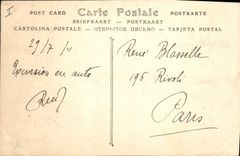 I
POST CARD Carte Postale POSTKARTE
BRIEFKAART — POSTKAART
CARTOLINA POSTALE — ОТКРЫТОЕ ПИСЬМО — TARJETA POSTAL
29/7/11
Excursion en auto
René
René Blasselle
196 Rivoli
Paris